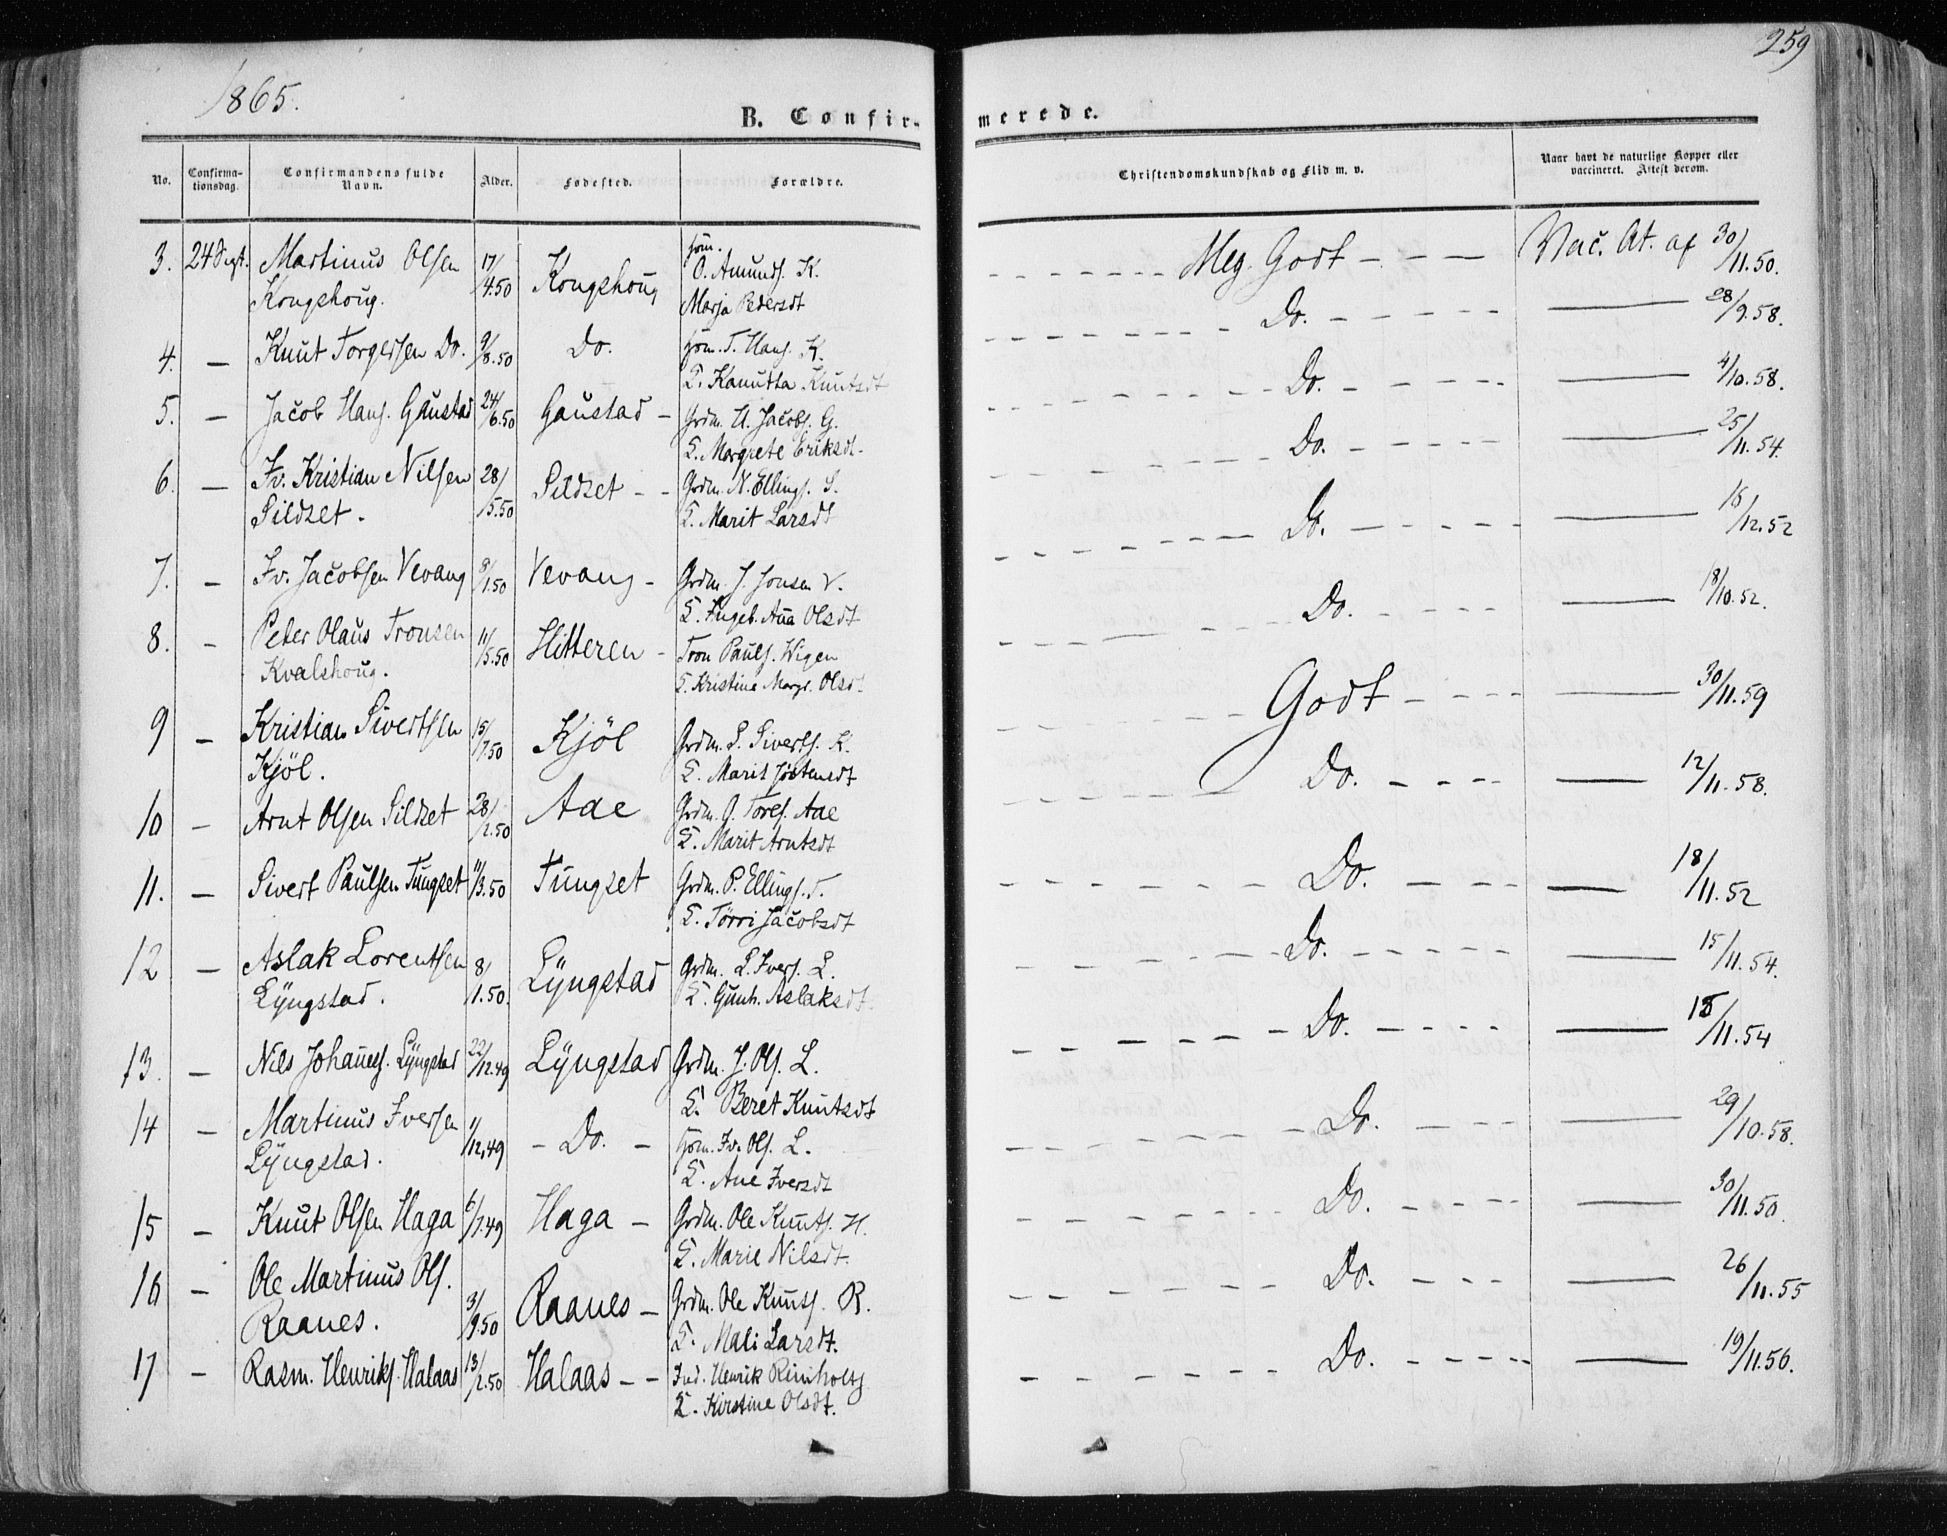 1865.
259
B. Confir-
merede.
No.
Confirma-
tionsdag.
Confirmandens fulde
Navn.
Alder.
Fødested.
Forældre.
Christendomskundskab og Flid m. v.
Naar havt de naturlige Kopper eller
vaccineret. Attest derom.
3. 24 Sept. Martinus Olsen 17/4.50 Kongshoug Hsm. O. Amunds. K. Meg. Godt Vac. At. af 30/11.50.
Kongshoug. Marja Pedersdt
4. — Knut Torgersen Do. 9/8.50 Do. Hsm. T. Hans. K. Do. — 28/9.58.
E. Kanutta Knutsdt
5. — Jacob Hans. Gaustad 24/6.50 Gaustad — Grdm. H. Jacobs. G. Do. — 4/10.58.
E. Margrete Eriksdt.
6. — Iv. Kristian Nilsen 28/5.50 Sildset - - Grdm. N. Ellings. S. Do. — 25/11.54.
Sildset. E. Marit Larsdt
7. — Iv. Jacobsen Vevang 9/1.50 Vevang - Grdm. J. Jonsen V. Do. — 16/12.52
E. Ingeb. Ana Olsdt
8. — Peter Olaus Tronsen 11/5.50 Hitteren - Tron Pauls. Wigen Do. — 18/10.52.
Kvalshoug. E. Kristine Margr. Olsdt.
9 — Kristian Sivertsen 15/7.50 Kjöl Grdm. S. Siverts. K. Godt — 30/11.59
Kjöl. E. Marit Jöstensdt
10 — Arnt Olsen Sildset 28/2.50 Aae Grdm. O. Tores. Aae Do. — 12/11.58.
E. Marit Arntsdt
11. — Sivert Paulsen Tungset 11/3.50 Tungset Grdm. P. Ellings. T. Do. — 18/11.52
E. Törri Jacobsdt
12 — Aslak Lorentsen 8/1.50. Lyngstad Grdm. L. Ivers. L. Do. — 15/11.54.
Lyngstad. E. Gunh. Aslaksdt.
13. — Nils Johannes. Lyngstad 22/12.49 Lyngstad Grdm. J. Ols. L. Do. — 15/11.54
E. Beret Knutsdt
14 — Martinus Iversen 1/12.49 - Do. - Hsm. Iv. Ols. L. Do. — 29/10.58.
Lyngstad. E. Ane Iversdt
15 — Knut Olsen Haga 6/7.49 Haga — Grdm. Ole Knuts. H. Do. — 30/11.50.
E. Marie Nilsdt.
16 — Ole Martinus Ols. 3/9.50 Raanes — Grdm. Ole Knuts. R. Do. — 26/11.55
Raanes. E. Mali Larsdt.
17 — Rasm. Henriks. Halaas 13/2.50 Halaas - - Ind. Henrik Reinholts. Do. — 19/11.56.
E. Kirstine Olsdt.